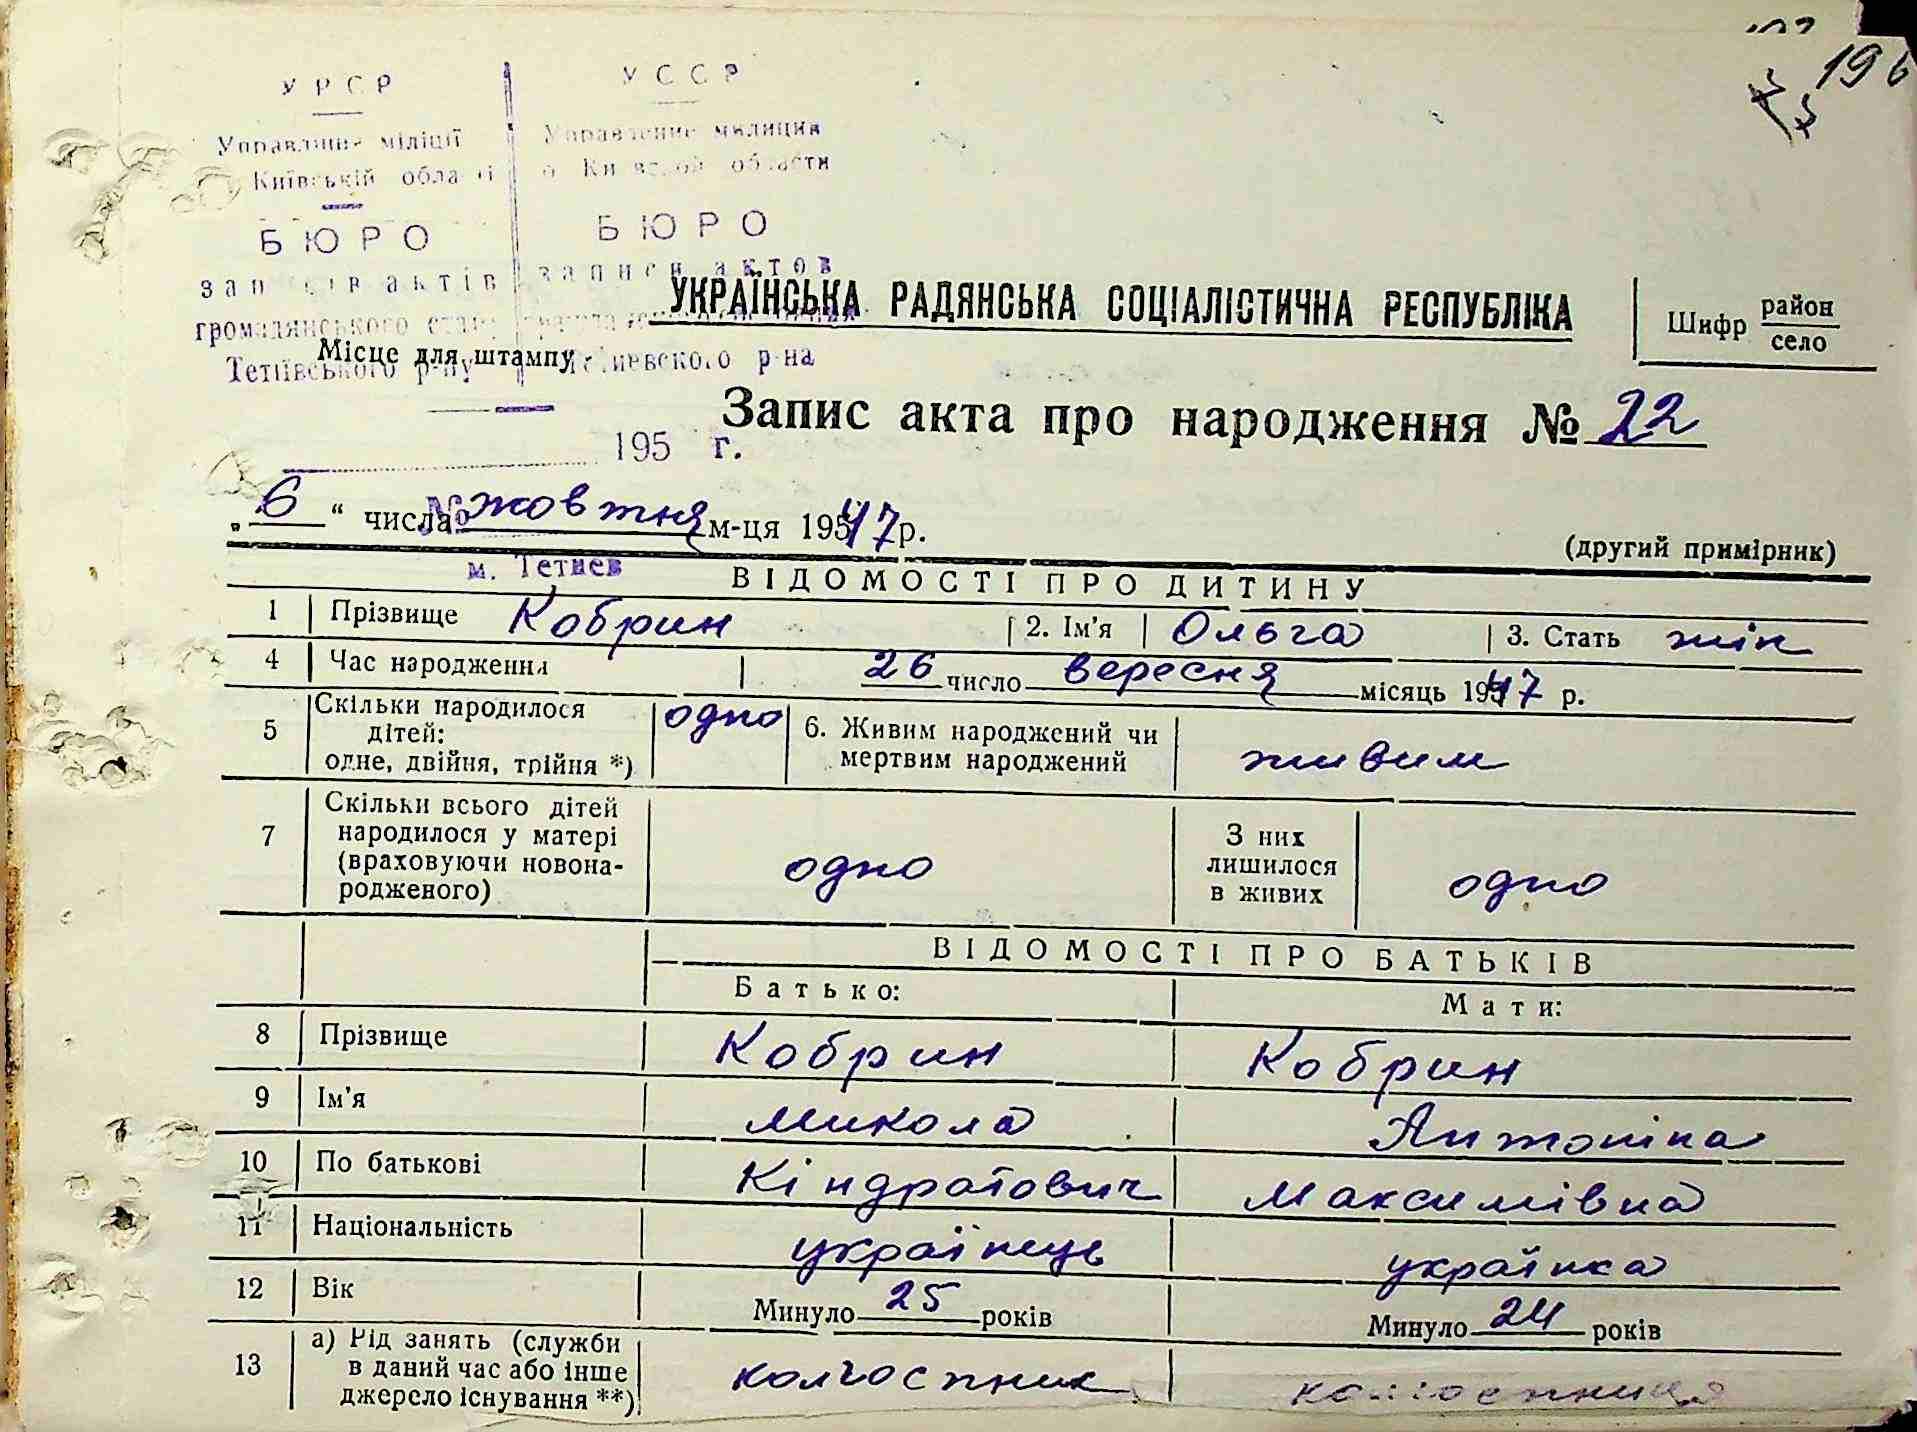 196
УРСР
УССР
Управління міліції
Управление милиции
Київській області
Киевской области
БЮРО
БЮРО
записів актів
записи актов
громадянського стану
УКРАЇНСЬКА РАДЯНСЬКА СОЦІАЛІСТИЧНА РЕСПУБЛІКА
Шифр район
село
Місце для штампу
Тетіївського р-ну
Тетиевского р-на
Запис акта про народження № 22
195 г.
„6“ числа жовтня м-ця 1947 р.
№
(другий примірник)
м. Тетиев
ВІДОМОСТІ ПРО ДИТИНУ
1 Прізвище Кобрин 2. Ім'я Ольга 3. Стать жін
4 Час народження 26 число вересня місяць 1947 р.
5 Скільки народилося дітей: одне, двійня, трійня *) одно 6. Живим народжений чи мертвим народжений живим
7 Скільки всього дітей народилося у матері (враховуючи новонародженого) одно З них лишилося в живих одно
ВІДОМОСТІ ПРО БАТЬКІВ
Батько: Мати:
8 Прізвище Кобрин Кобрин
9 Ім'я Микола Антоніна
10 По батькові Кіндратович Максимівна
11 Національність українець українка
12 Вік Минуло 25 років Минуло 24 років
13 а) Рід занять (служби в даний час або інше джерело існування **) колгоспник колгоспниця